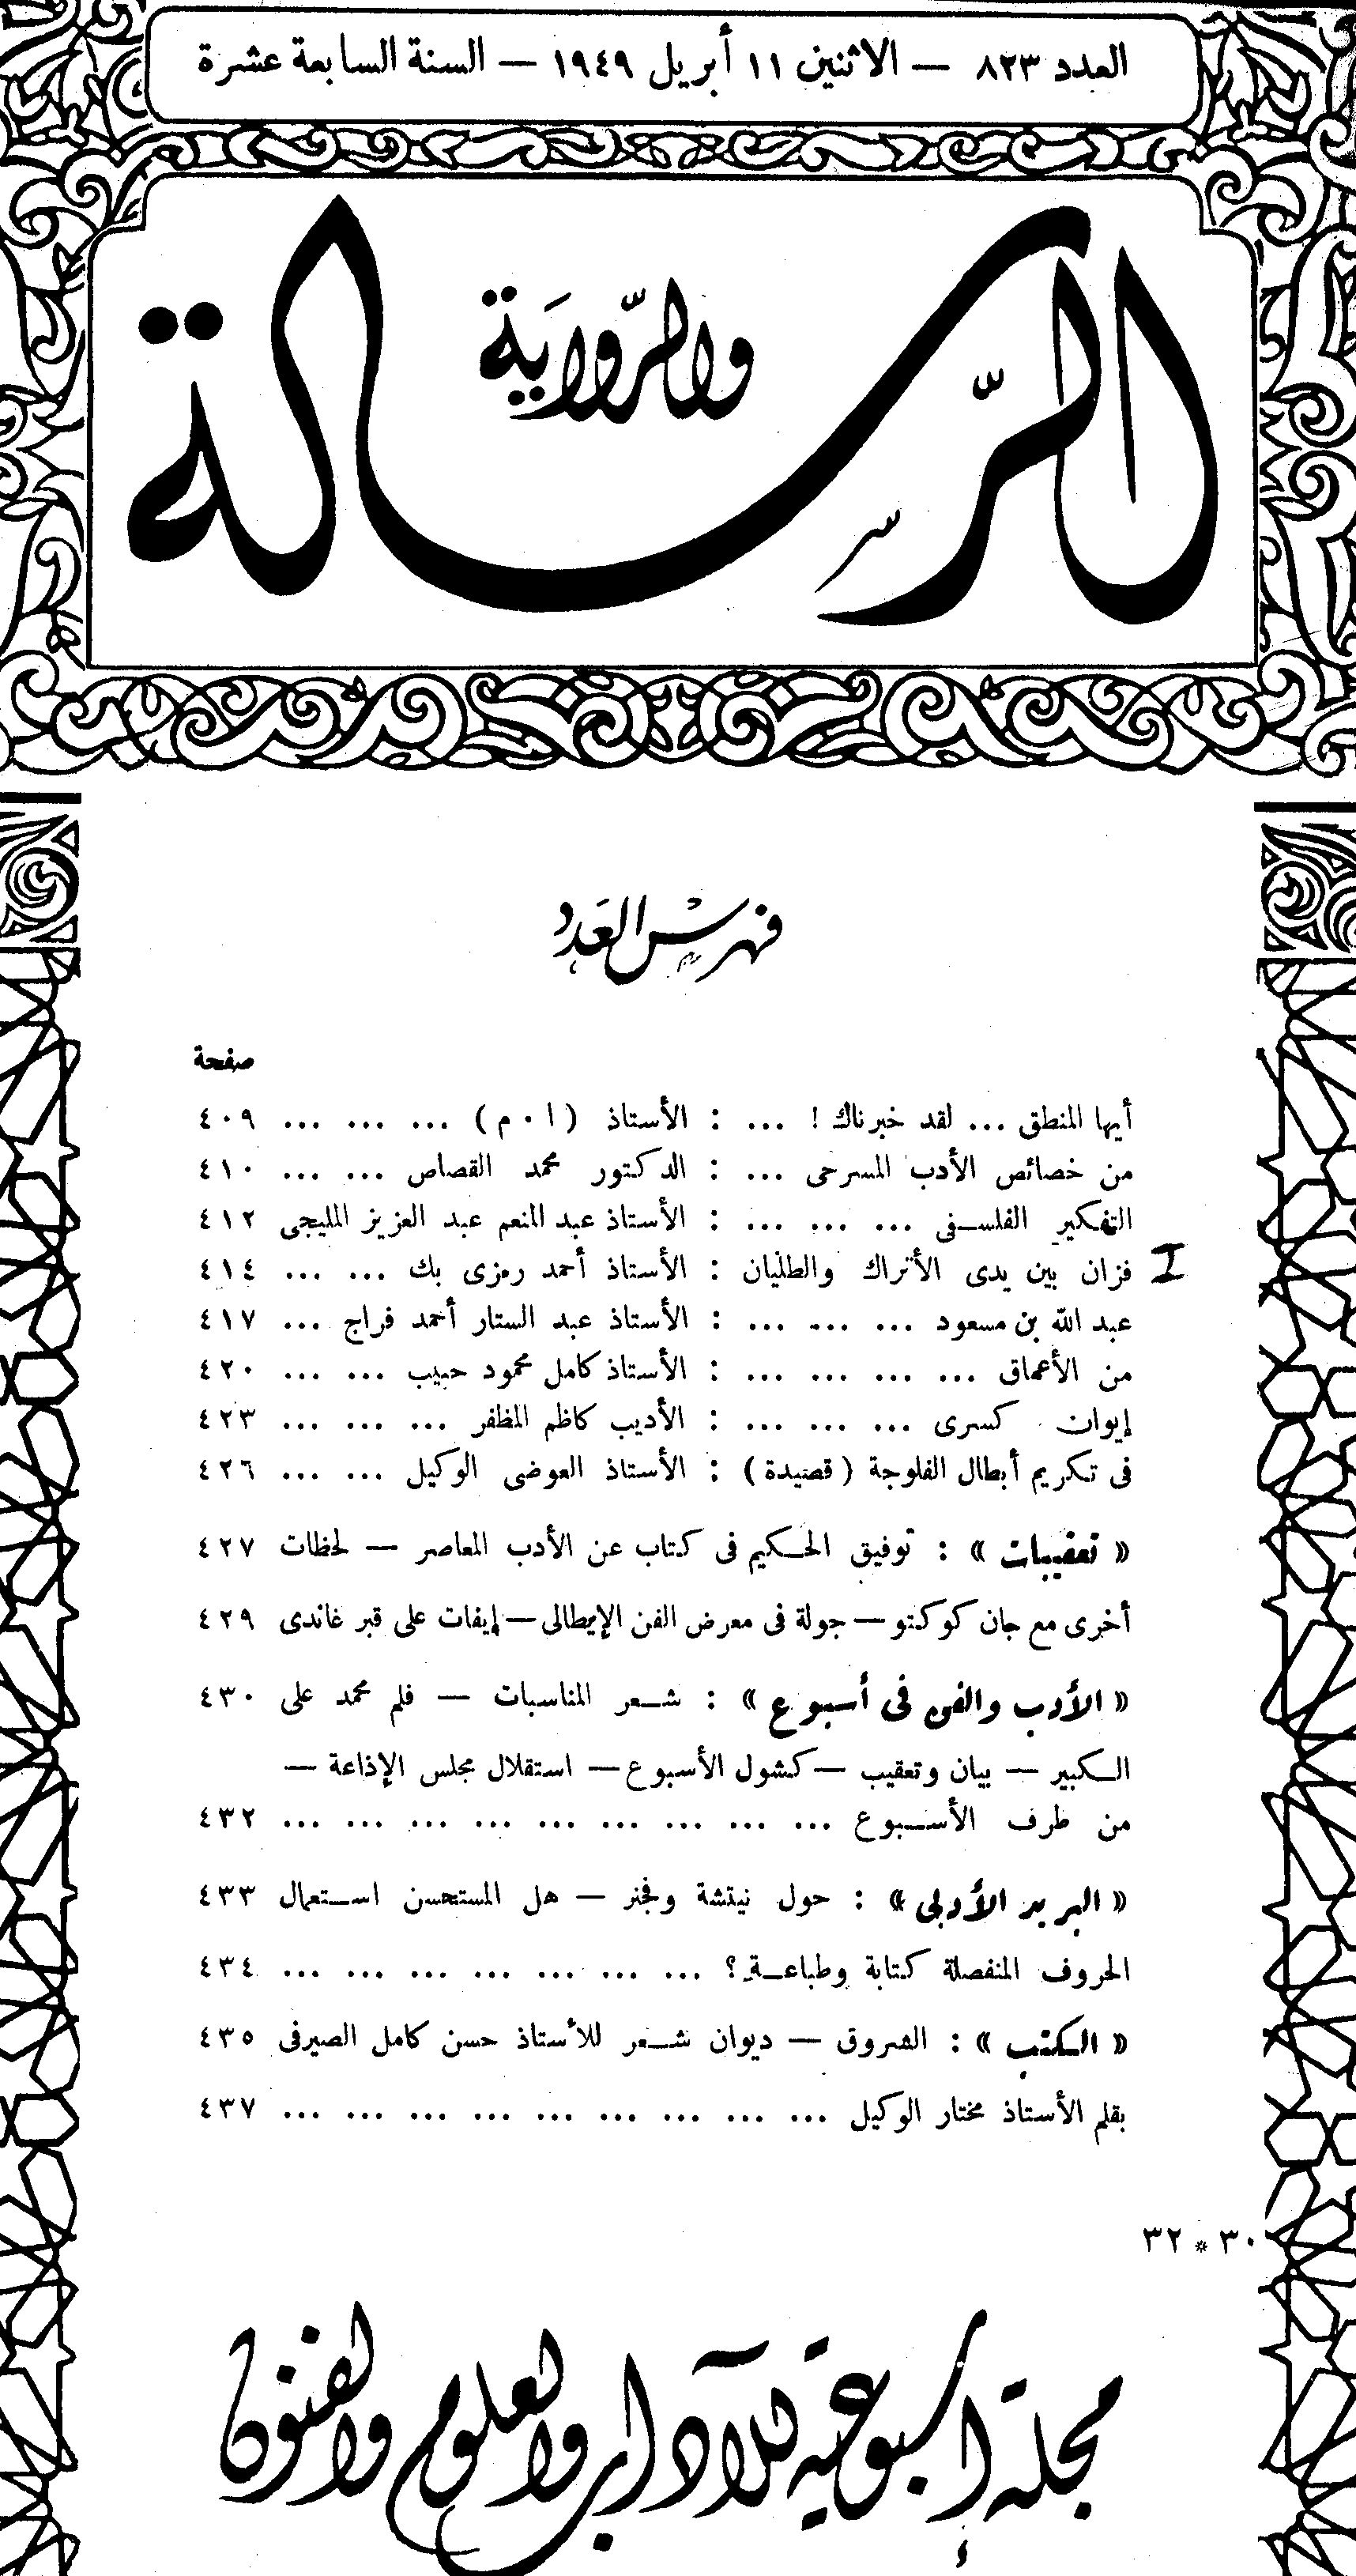 العدد ٨٢٣ — الاثنين ١١ أبريل ١٩٤٩ — السنة السابعة عشرة
الرّسالة
والرّوايَة
فهرس العَدد
صفحة
أيها المنطق ... لقد خبرناك ! ... : الأستاذ ( ا ٠ م ) ... ... ... ٤٠٩
من خصائص الأدب المسرحى ... : الدكتور محمد القصاص ... ... ٤١٠
التفكير الفلسفى ... ... ... : الأستاذ عبد المنعم عبد العزيز المليجى ٤١٢
فزان بين يدى الأتراك والطليان : الأستاذ أحمد رمزى بك ... ... ٤١٤
عبد الله بن مسعود ... ... ... : الأستاذ عبد الستار أحمد فراج ... ٤١٧
من الأعماق ... ... ... ... : الأستاذ كامل محمود حبيب ... ... ٤٢٠
إيوان كسرى ... ... ... : الأديب كاظم المظفر ... ... ... ٤٢٣
فى تكريم أبطال الفلوجة ( قصيدة ) : الأستاذ العوضى الوكيل ... ... ٤٢٦
« تعقيبات » : توفيق الحكيم فى كتاب عن الأدب المعاصر — لحظات ٤٢٧
أخرى مع جان كوكتو — جولة فى معرض الفن الإيطالى — إيفات على قبر غاندى ٤٢٩
« الأدب والفن فى أسبوع » : شعر المناسبات — فلم محمد على ٤٣٠
الكبير — بيان وتعقيب — كشول الأسبوع — استقلال مجلس الإذاعة —
من طرف الأسبوع ... ... ... ... ... ... ... ... ... ٤٣٢
« البريد الأدبى » : حول نيتشة وفجنر — هل المستحسن استعمال ٤٣٣
الحروف المنفصلة كتابة وطباعة ؟ ... ... ... ... ... ... ... ٤٣٤
« الكتب » : الشروق — ديوان شعر للأستاذ حسن كامل الصيرفى ٤٣٥
بقلم الأستاذ مختار الوكيل ... ... ... ... ... ... ... ... ... ٤٣٧
٣٠ * ٣٢
مجلة أسبوعية للآداب والعلوم والفنون